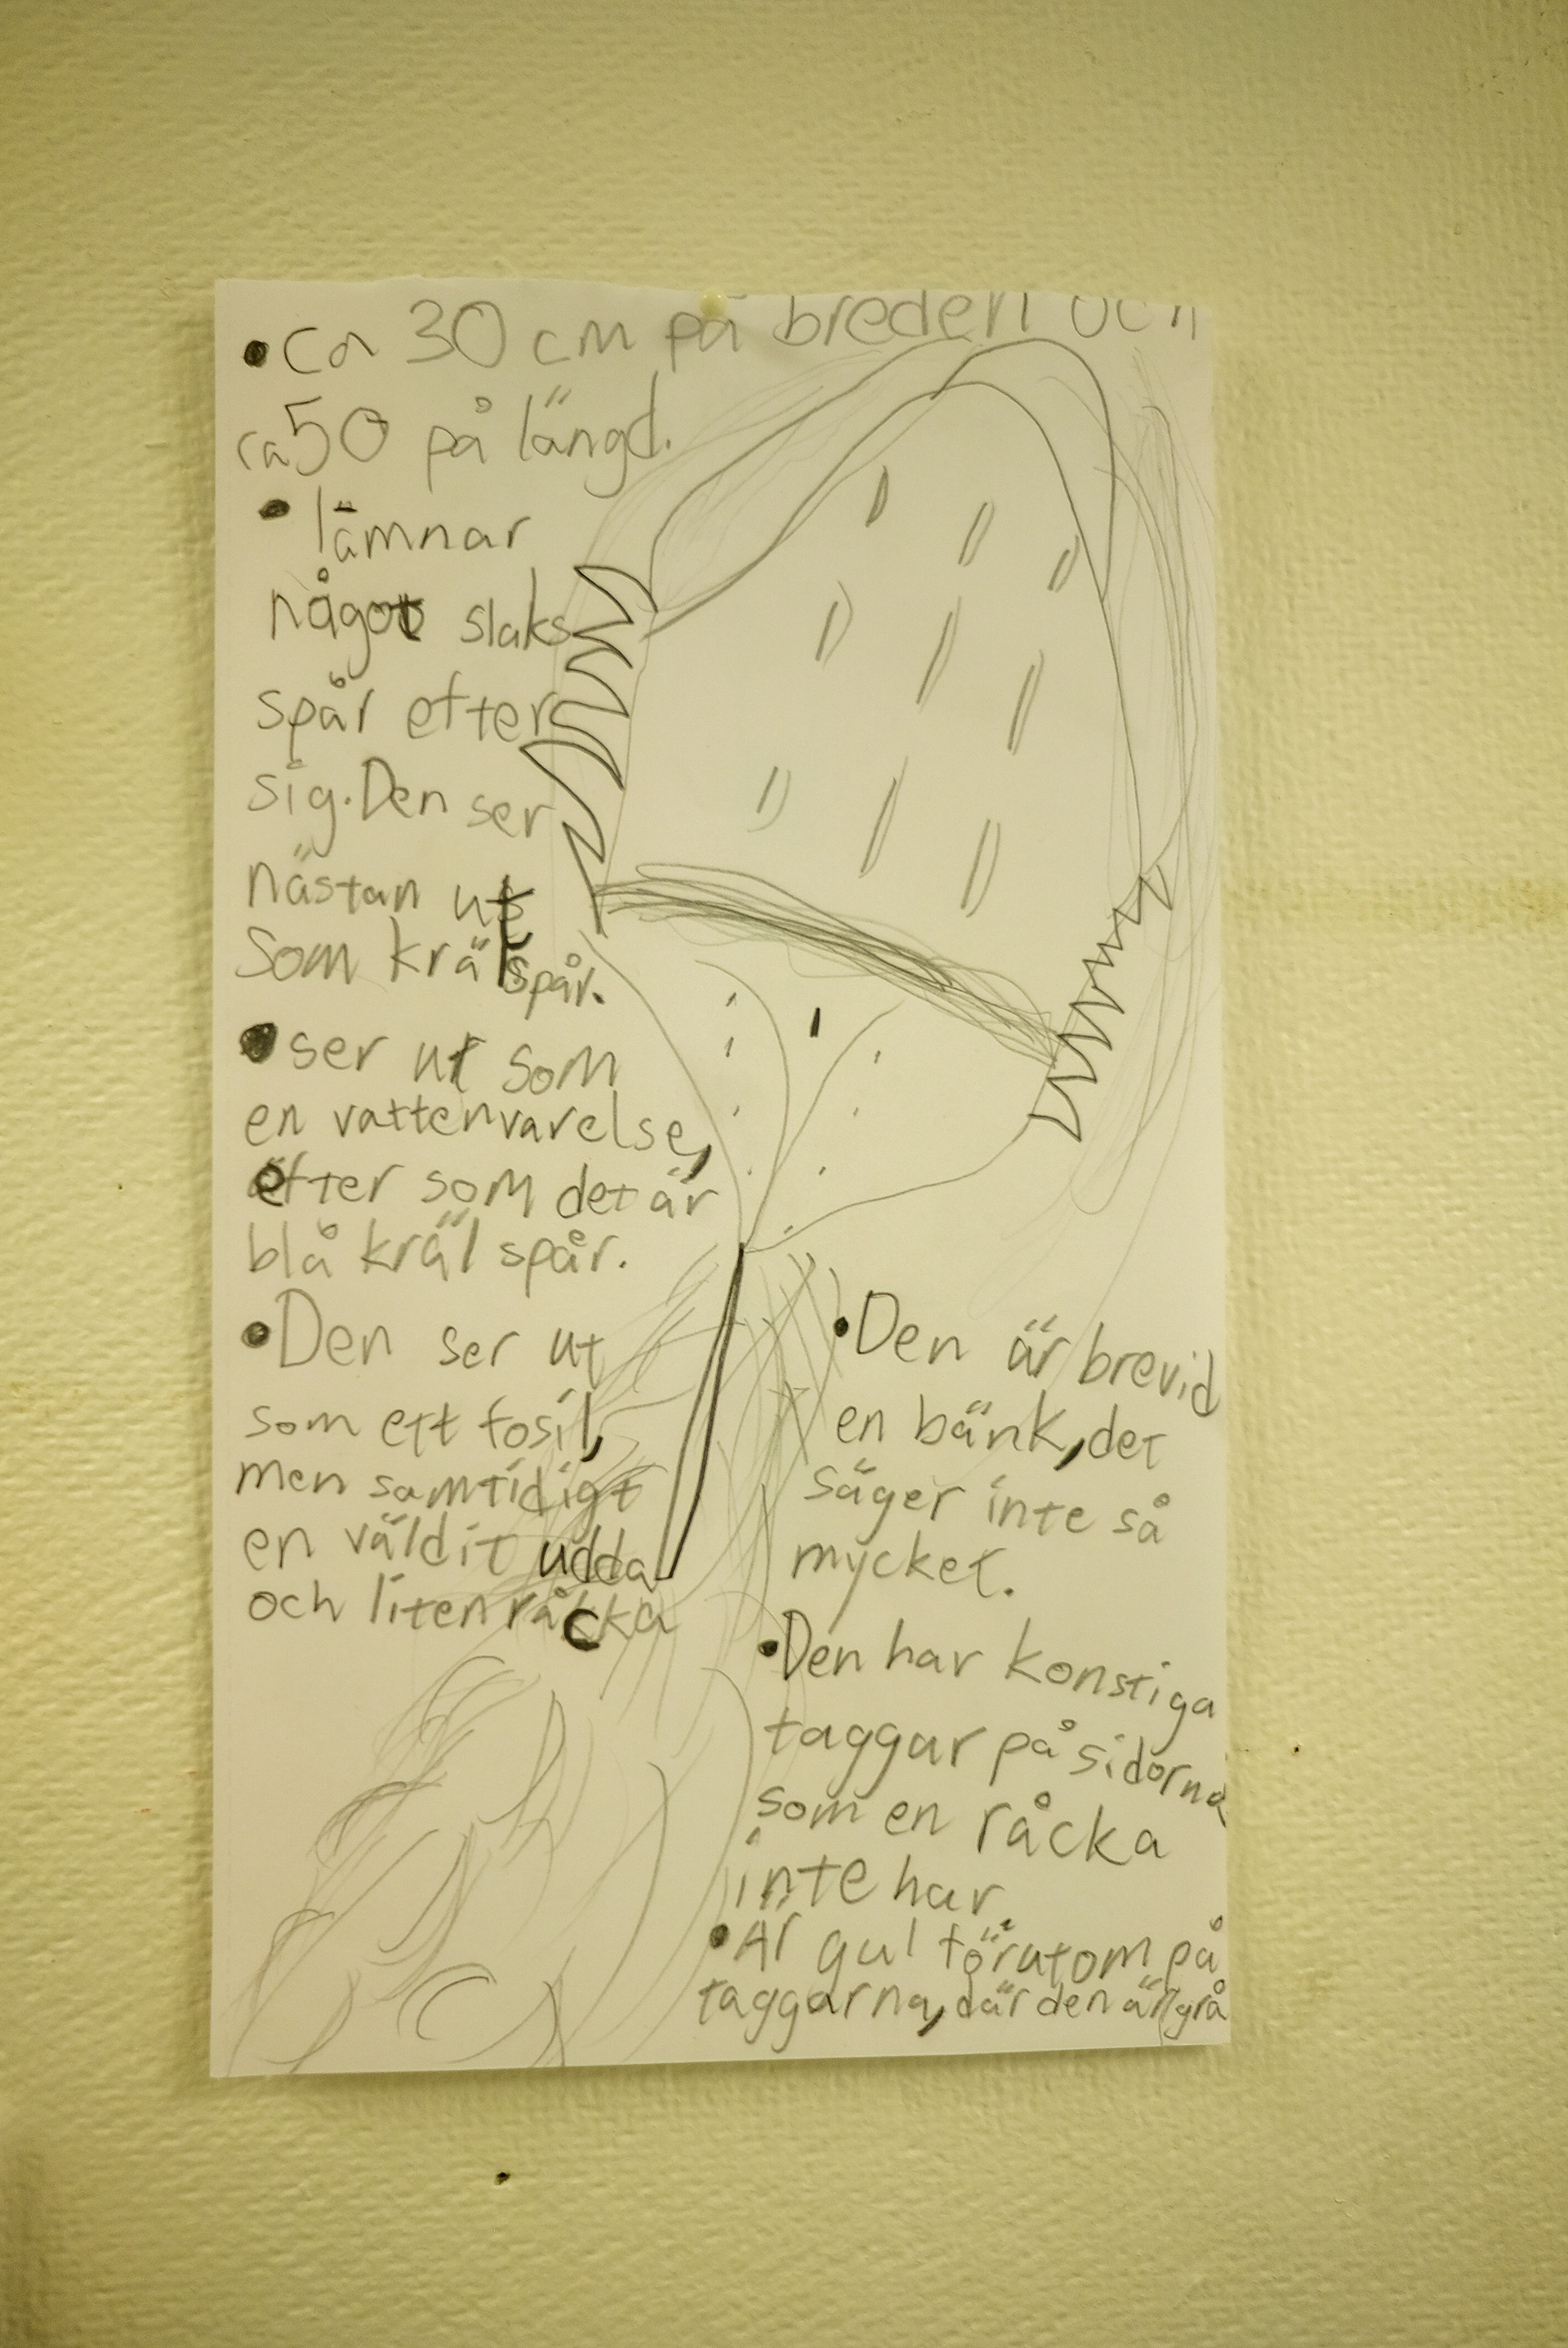 • ca 30 cm på breden och
ca 50 på längd.
• lämnar
något slaks
spår efter
sig. Den ser
nästan ut
som krälspår.
• ser ut som
en vattenvarelse,
efter som det är
blå kräl spår.
• Den ser ut
som ett fosil,
men samtidigt
en väldit udda
och liten råcka
• Den är brevid
en bänk, det
säger inte så
mycket.
• Den har konstiga
taggar på sidorna
som en råcka
inte har.
• Är gul förutom på
taggarna, där den är grå